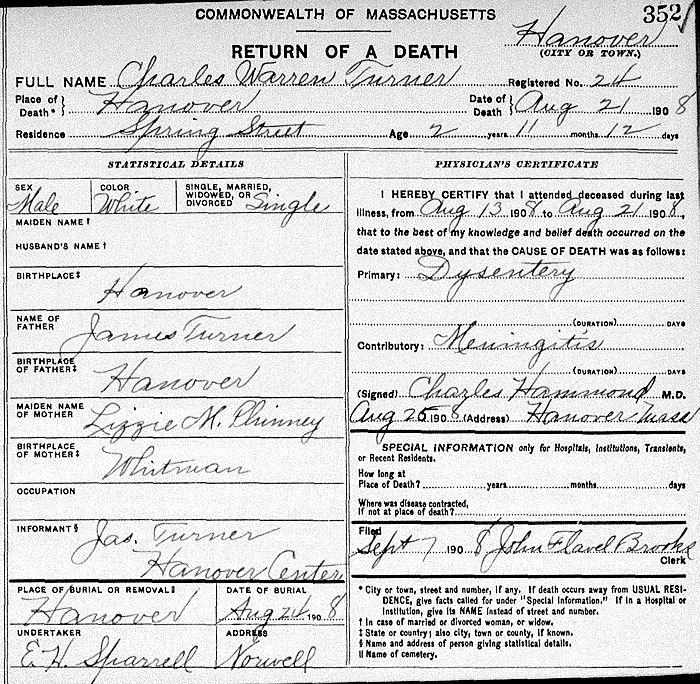 COMMONWEALTH OF MASSACHUSETTS
352
RETURN OF A DEATH
Hanover
(CITY OR TOWN.)
FULL NAME Charles Warren Turner Registered No. 24
Place of Death* } Hanover Date of Death } Aug 21 1908
Residence Spring Street Age 2 years 11 months 12 days
STATISTICAL DETAILS
SEX Male COLOR White SINGLE, MARRIED, WIDOWED, OR DIVORCED Single
MAIDEN NAME †
HUSBAND'S NAME †
BIRTHPLACE ‡ Hanover
NAME OF FATHER James Turner
BIRTHPLACE OF FATHER ‡ Hanover
MAIDEN NAME OF MOTHER Lizzie M. Phinney
BIRTHPLACE OF MOTHER ‡ Whitman
OCCUPATION
INFORMANT § Jas. Turner
Hanover Center
PLACE OF BURIAL OR REMOVAL ‖ Hanover DATE OF BURIAL Aug 24 1908
UNDERTAKER E. H. Sparrell ADDRESS Norwell
PHYSICIAN'S CERTIFICATE
I HEREBY CERTIFY that I attended deceased during last
illness, from Aug 13 1908 to Aug 21 1908,
that to the best of my knowledge and belief death occurred on the
date stated above, and that the CAUSE OF DEATH was as follows:
Primary: Dysentery
(DURATION) DAYS
Contributory: Meningitis
(DURATION) DAYS
(Signed) Charles Hammond M.D.
Aug 25 1908 (Address) Hanover Mass
SPECIAL INFORMATION only for Hospitals, Institutions, Transients,
or Recent Residents.
How long at
Place of Death? years months days
Where was disease contracted,
If not at place of death?
Filed
Sept 7 1908 John Flavel Brooks
Clerk
* City or town, street and number, if any. If death occurs away from USUAL RESI-
DENCE, give facts called for under "Special Information." If in a Hospital or
Institution, give its NAME instead of street and number.
† In case of married or divorced woman, or widow.
‡ State or country; also city, town or county, if known.
§ Name and address of person giving statistical details.
‖ Name of cemetery.